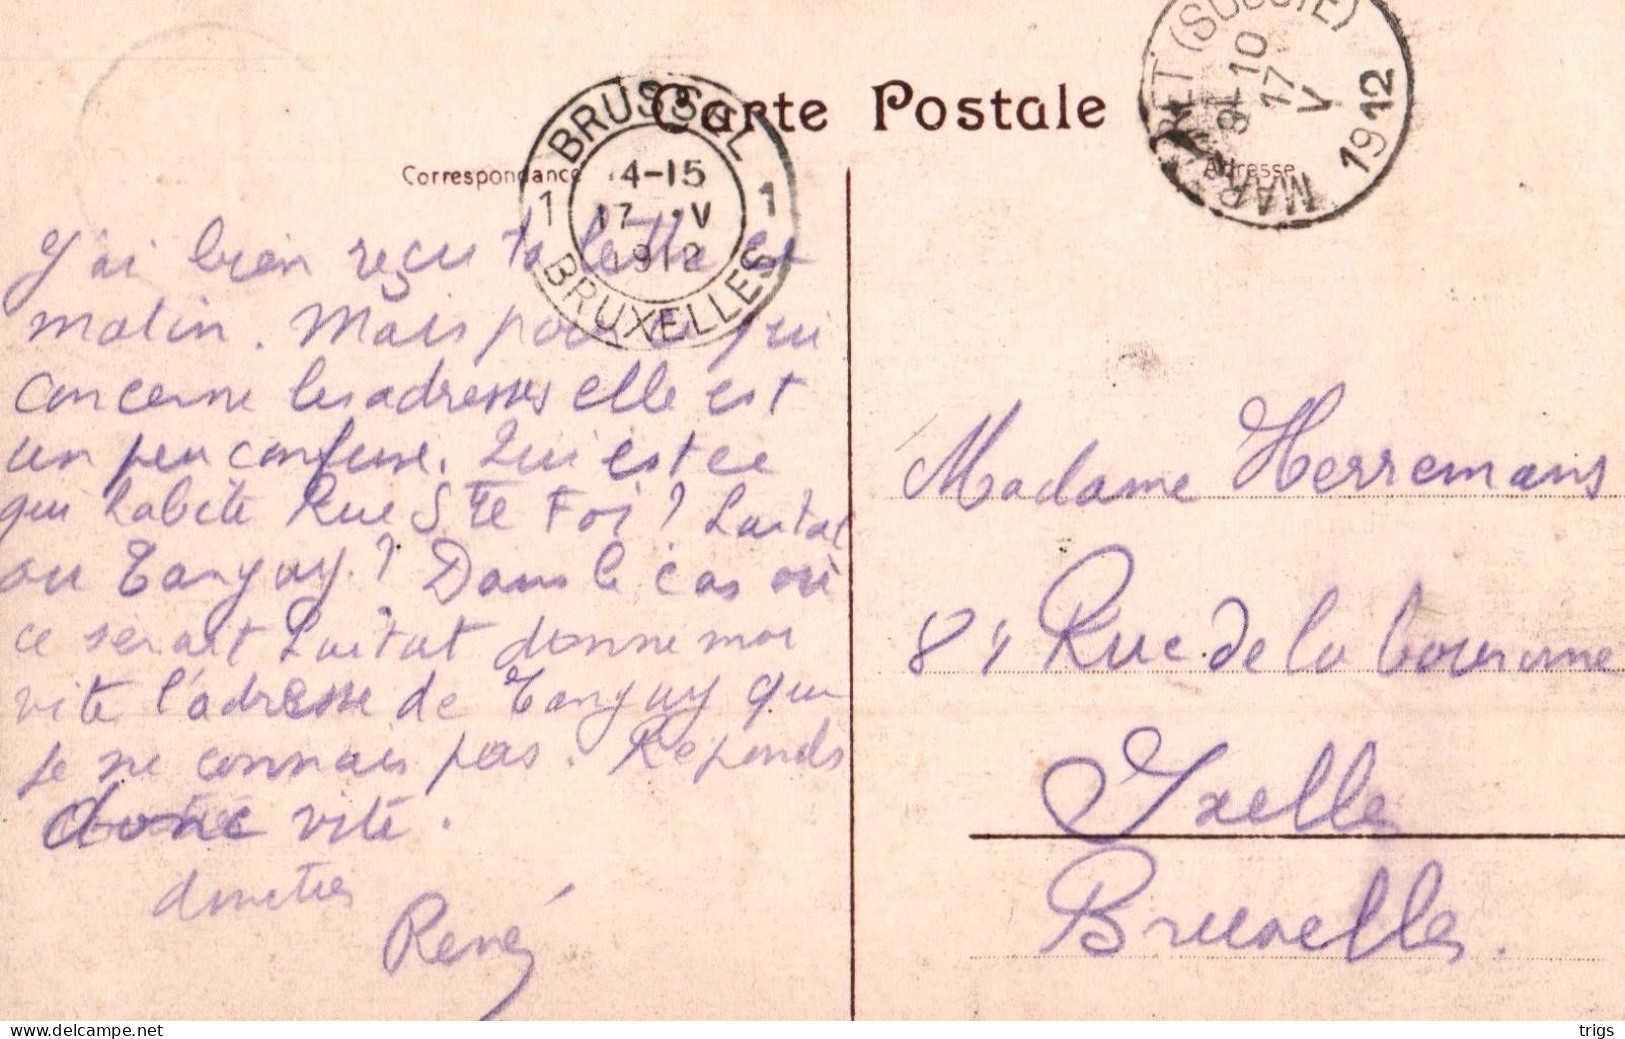 Carte Postale
Correspondance
Adresse
BRUSSEL
1 4-15 1
17 V
1912
BRUXELLES
(SUCCIE)
9L10
17
V
1912
J'ai bien reçu ta lettre ce
matin. Mais pour ce qui
concerne les adresses elle est
un peu confuse. Qui est ce
qui habite Rue Ste Foi?
ou Tanguy? Dans le cas où
ce serait donne moi
vite l'adresse de Tanguy que
je ne connais pas. Reponds
donc vite.
René
Madame Herremans
84 Rue de la Couronne
Ixelles
Bruxelles.
https://www.delcampe.net
trigs